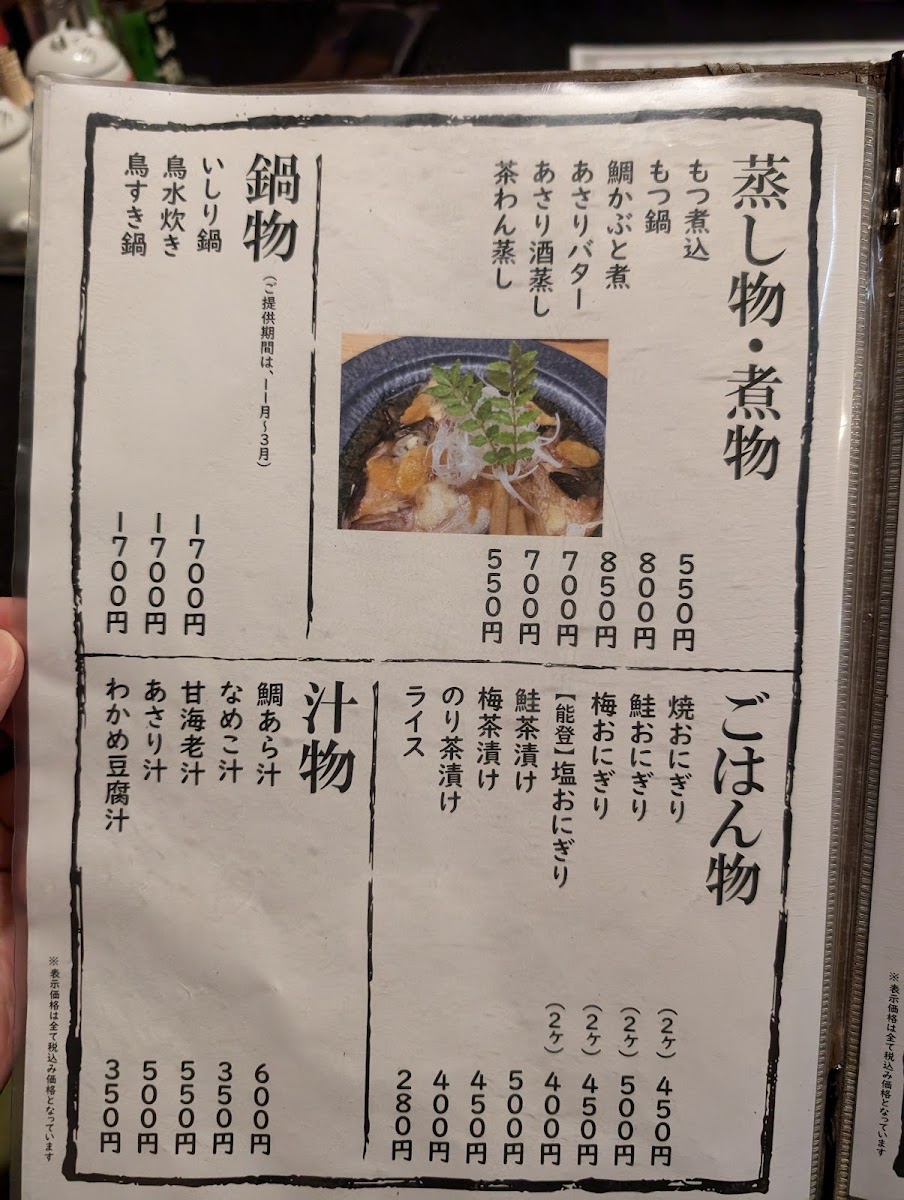 蒸し物・煮物
もつ煮込 550円
もつ鍋 800円
鯛かぶと煮 850円
あさりバター 700円
あさり酒蒸し 700円
茶わん蒸し 550円
鍋物
(ご提供期間は、11月~3月)
いしり鍋 1700円
鳥水炊き 1700円
鳥すき鍋 1700円
ごはん物
焼おにぎり (2ヶ) 450円
鮭おにぎり (2ヶ) 500円
梅おにぎり (2ヶ) 450円
【能登】塩おにぎり (2ヶ) 400円
鮭茶漬け 500円
梅茶漬け 450円
のり茶漬け 400円
ライス 280円
汁物
鯛あら汁 600円
なめこ汁 350円
甘海老汁 550円
あさり汁 500円
わかめ豆腐汁 350円
※表示価格は全て税込み価格となっています
※表示価格は全て税込み価格となっています